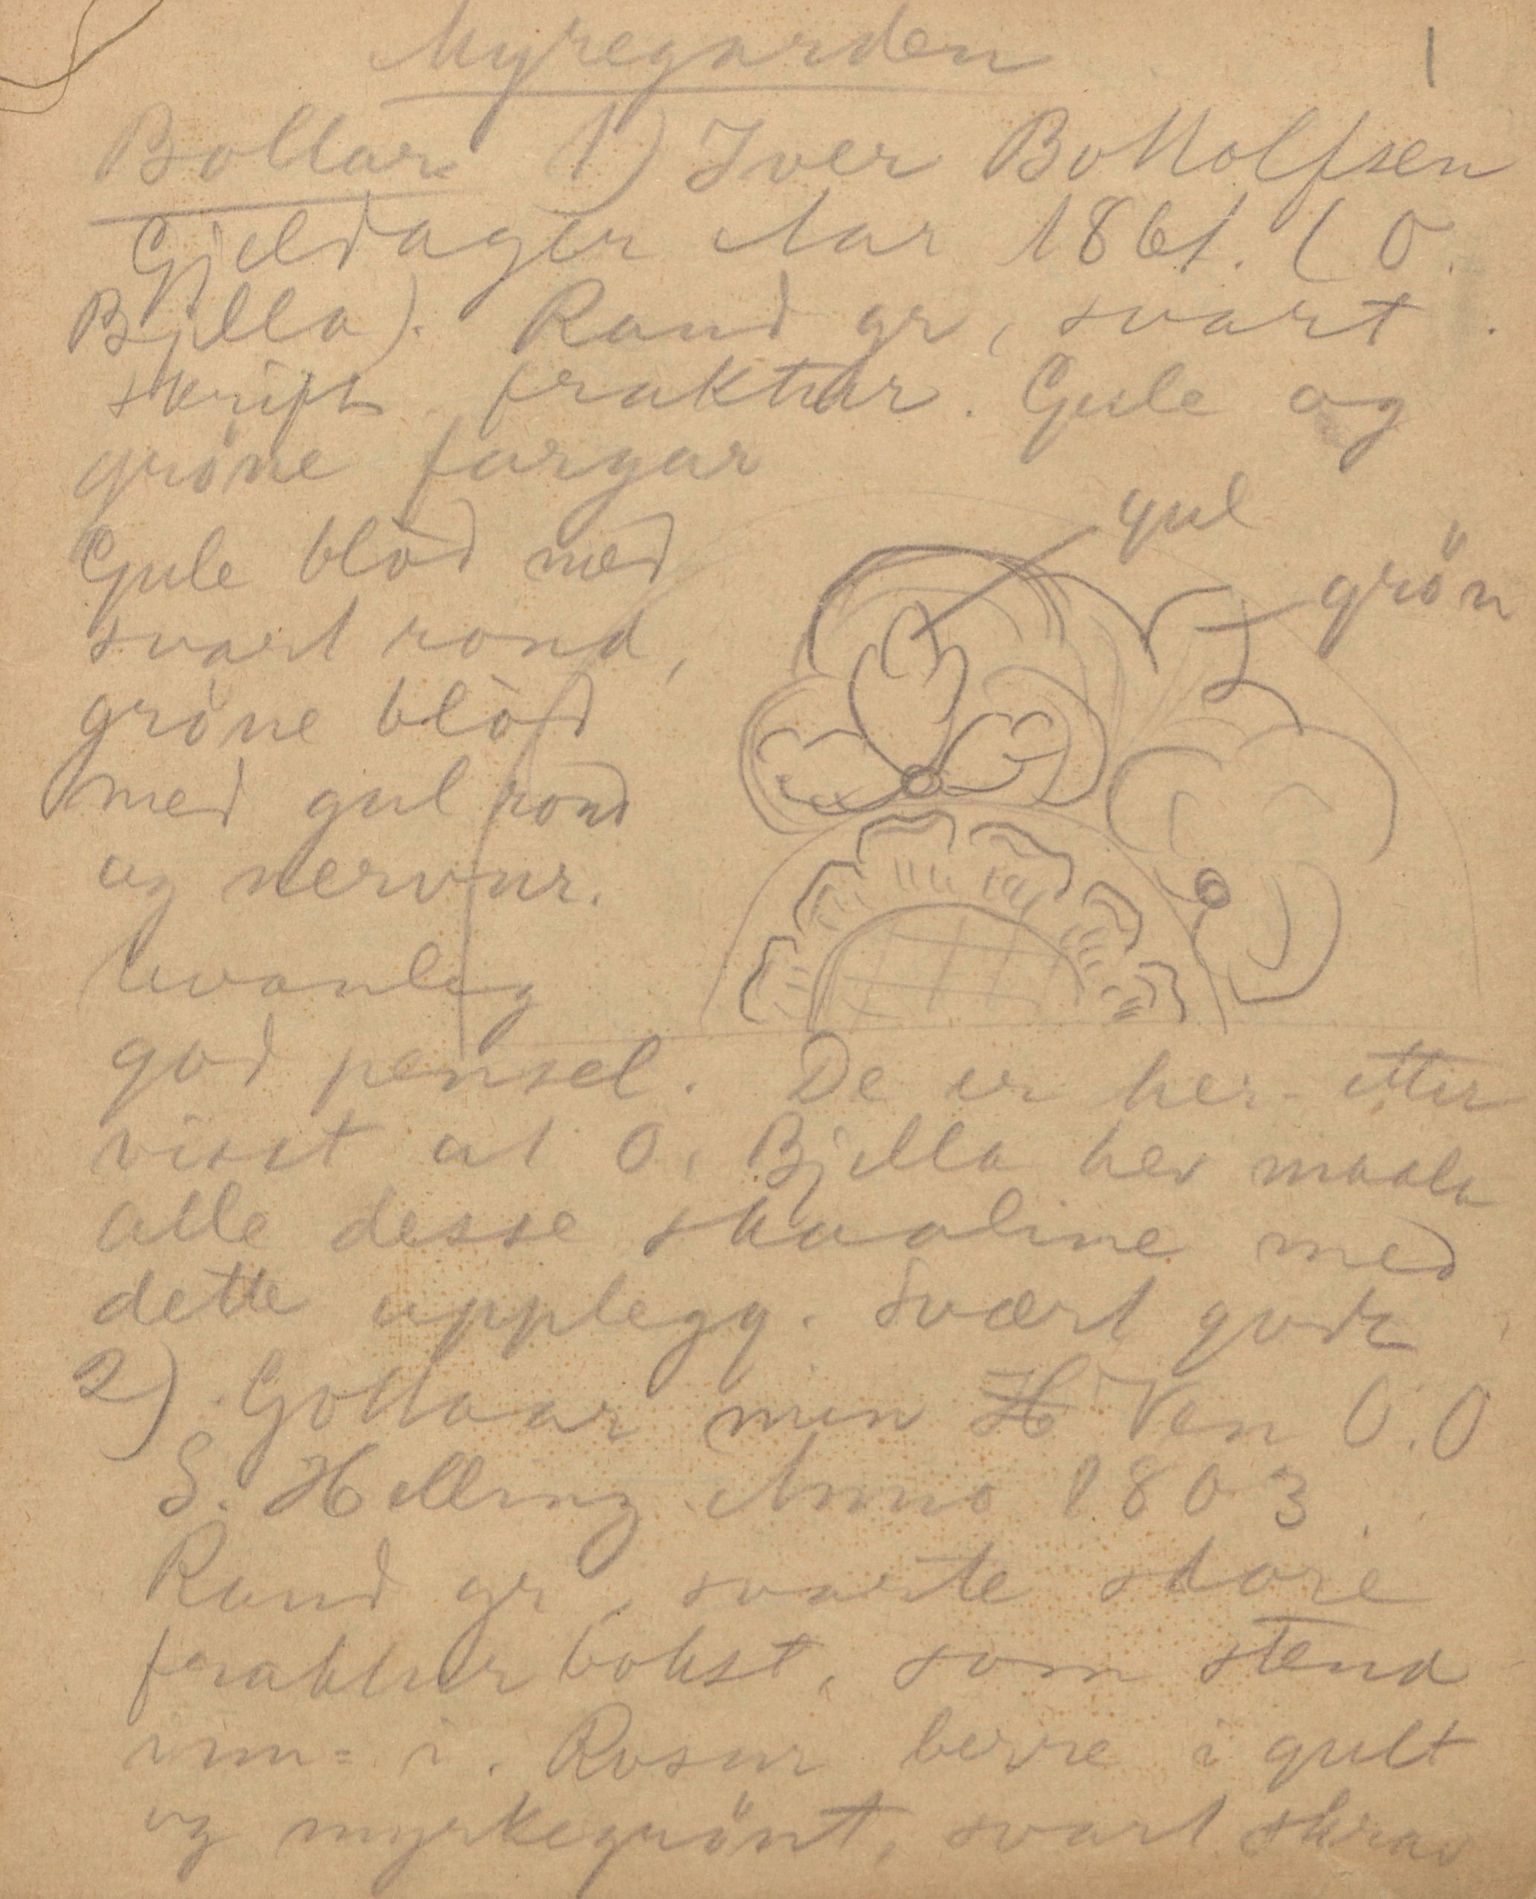 Myregarden
1
Bollar 1) Iver Bottolfsen
Gjeldager Aar 1861. (O.
Bjella). Rand gr, svart
skrift fraktur. Gule og
gröne fargar
Gule blöd med
svart rond,
gröne blöd
med gul rond
og nervur.
Uvanleg
god pensel. De er her etter
visst at O. Bjella hev maala
alle desse skaaline med
dette upplegg. Svært gode
gul
grön
2) Gottaar min H Ven O.O
S. Helling Anno 1803.
Rand gr, svarte store
frakturbokst, som stend
inn-i. Rosur berre i gult
og myrkegrönt, svart skrav